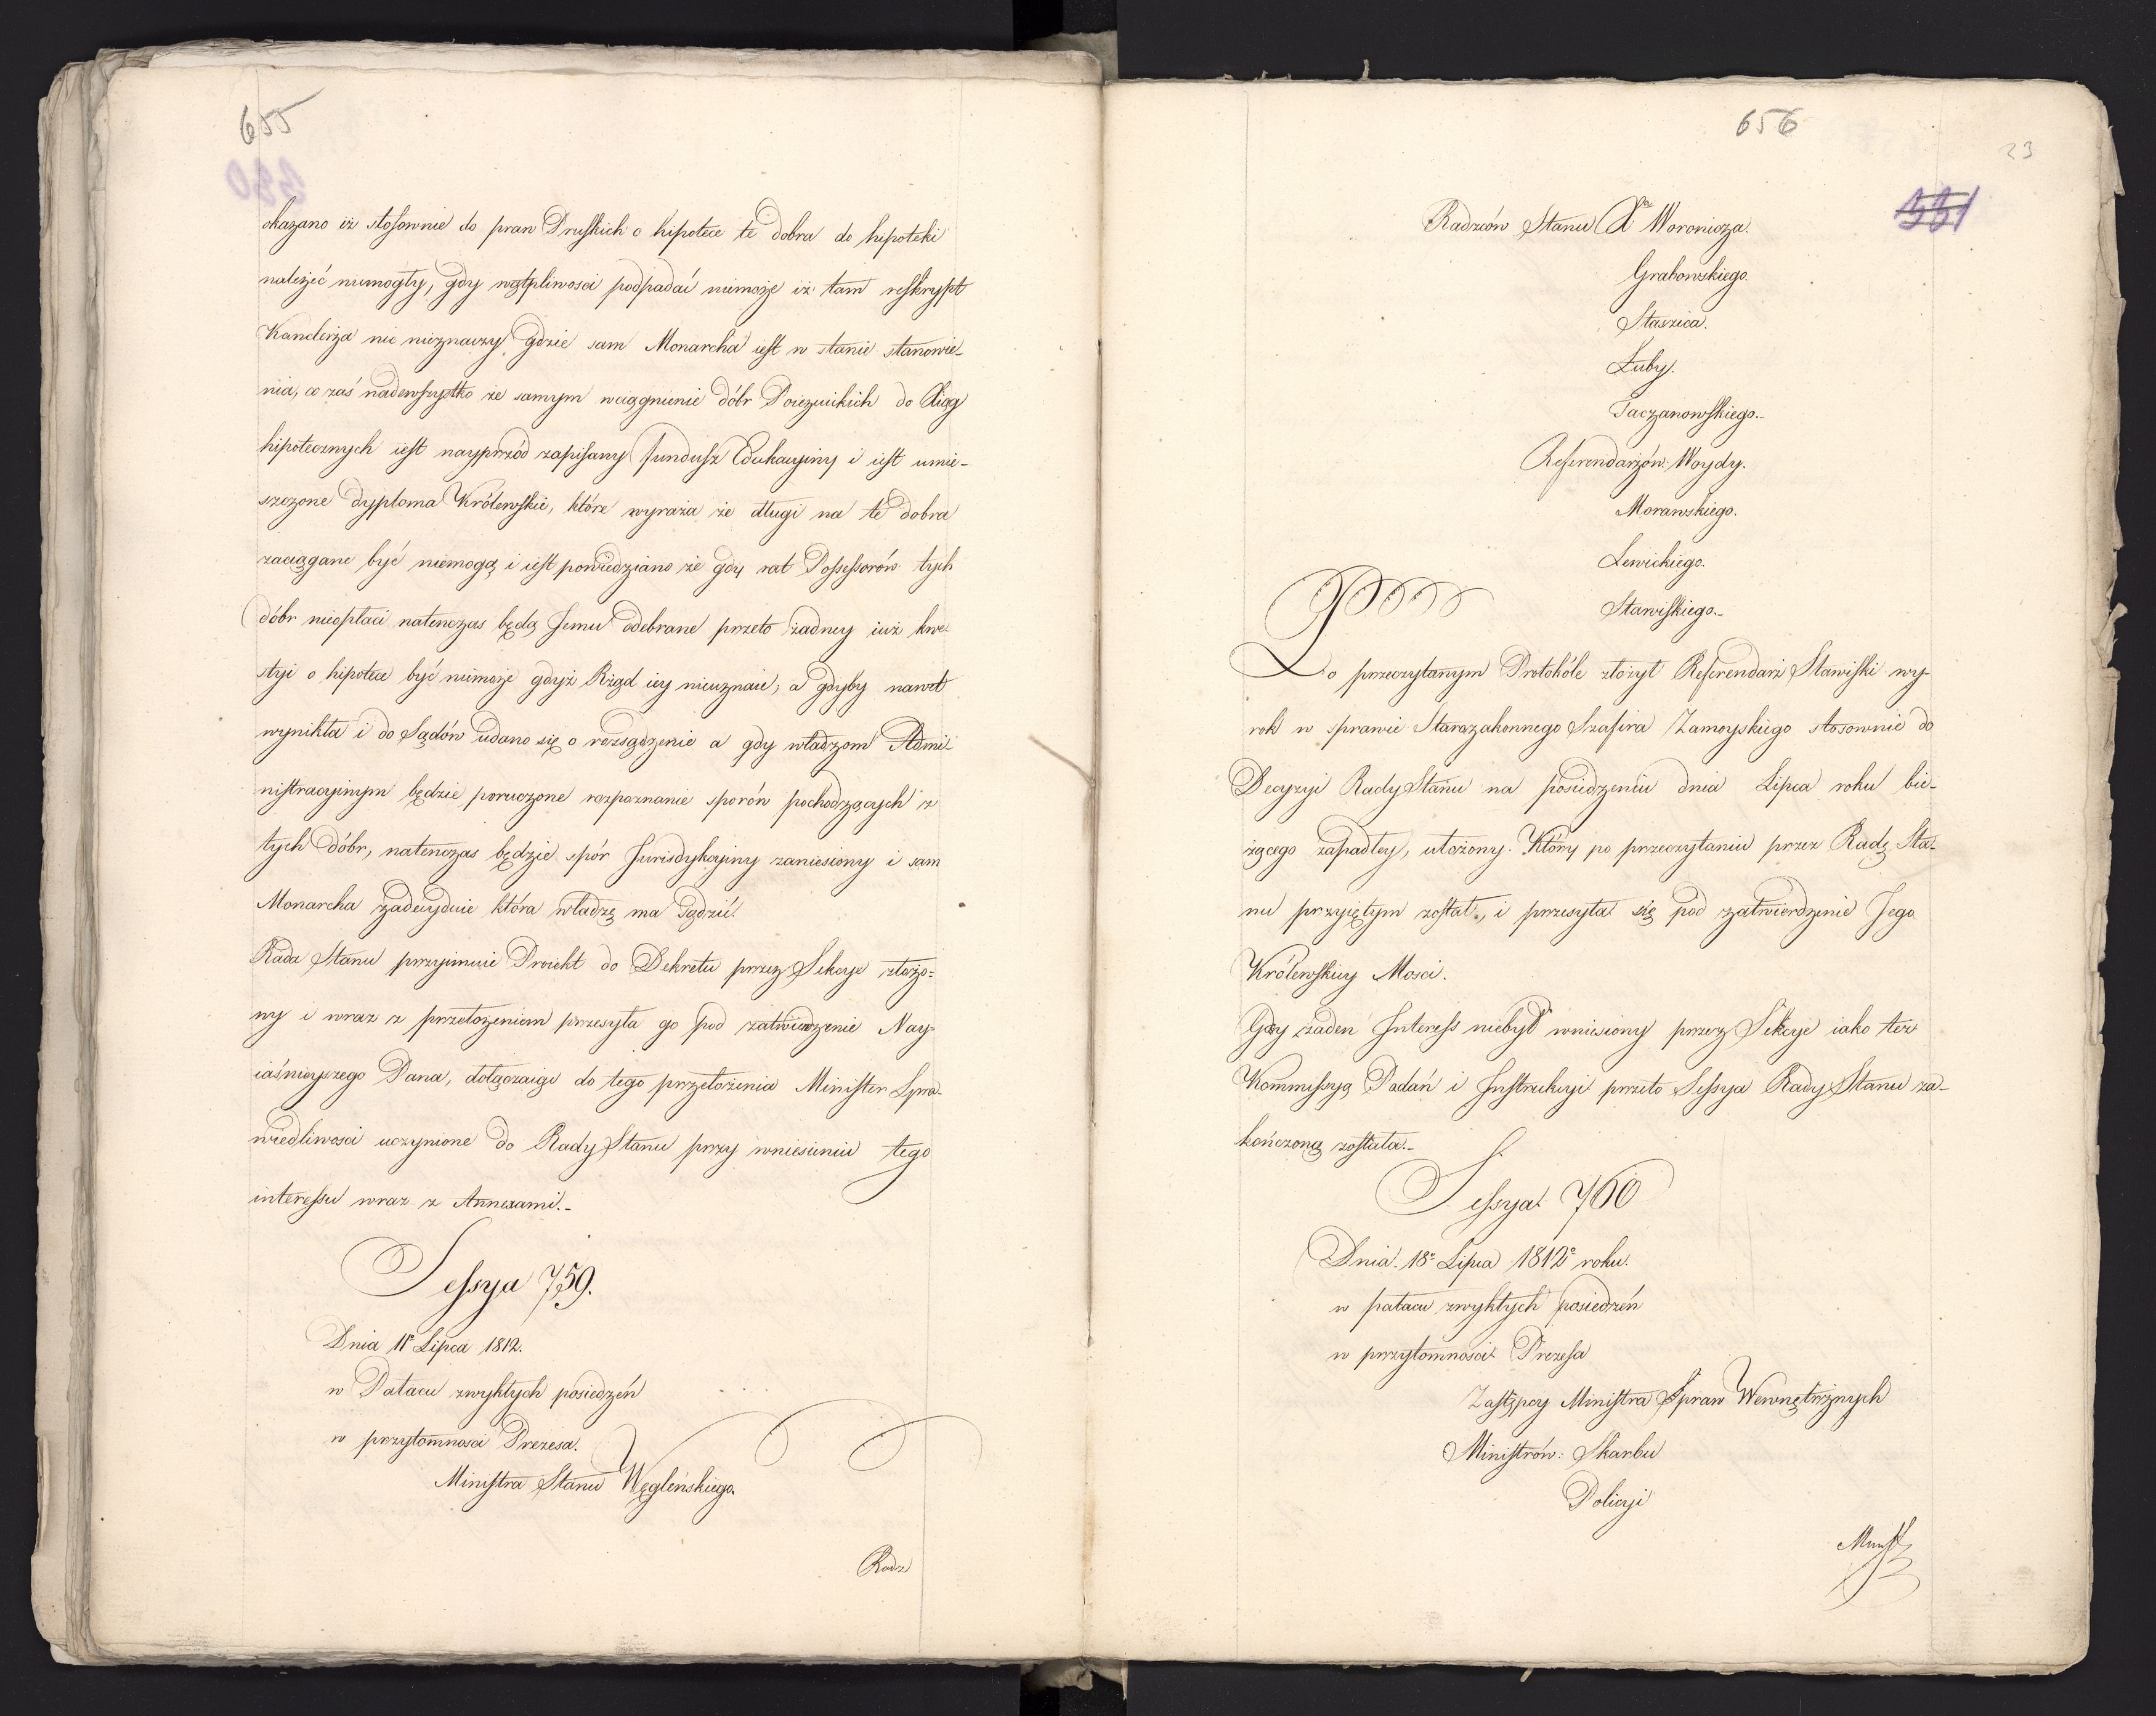 655
okazano iż stosownie do praw Pruskich o hipotece te dobra do hipoteki
należeć niemogły, gdy wątpliwosci podpadać niemoże iż tam reskrypt
Kanclerza nic nieznaczy gdzie sam Monarcha iest w stanie stanowie-
nia, co zaś nadewszystko że samym wciągnienie dóbr Poiezuickich do Xiąg
hipotecznych iest nayprzód zapisany fundusz Edukacyiny i iest umie-
szczone dyploma Królewskie, które wyraża że długi na te dobra
zaciągane być niemogą i iest powiedziano że gdy rat Possessorów tych
dóbr nieopłaci natenczas będą Jemu odebrane przeto żadney iuż kwe-
styi o hipotece być niemoże gdyż Rząd iey nieuznaie, a gdyby nawet
wynikła i do Sądów udano się o rozsądzenie a gdy władzom Admi-
nistracyinym będzie poruczone rozpoznanie sporów pochodzących z
tych dóbr, natenczas będzie spór Jurisdykcyiny zaniesiony i sam
Monarcha zadecyduie która władzę ma sądzić.
Rada Stanu przyimuie Proiekt do Dekretu przez Sekcye złożo=
ny i wraz z przełożeniem przesyła go pod zatwierdzenie Nay=
iaśnieyszego Pana, dołączaiąc do tego przełożenia Minister Spra-
wiedliwosci uczynione do Rady Stanu przy wniesieniu tego
interessu wraz z Annexami.-
Sessya 759.
Dnia 11º Lipca 1812.
w Pałacu zwykłych posiedzeń
w przytomnosci Prezesa.
Ministra Stanu Węgleńskiego.
Radz
656
23
331
Radzców Stanu Xa Woronicza.
Grabowskiego.
Staszica.
Łuby.
Taczanowskiego.-
Referendarzów: Woydy.
Morawskiego.
Lewickiego.
Stawiskiego.-
Po przeczytanym Protokóle złożył Referendarz Stawiski wy-
rok w sprawie Starozakonnego Szafira Zamoyskiego stosownie do
Decyzyi Rady Stanu na posiedzeniu dnia Lipca roku bie-
żącego zapadłey, ułożony. Który po przeczytaniu przez Radę Sta-
nu przyiętym został, i przesyła się pod zatwierdzenie Jego
Królewskiey Mosci.
Gdy żaden Interess niebył wniesiony przez Sekcye iako też
Kommissyą Podań i Instrukcyi przeto Sessya Rady Stanu za-
kończoną została.-
Sessya 760
Dnia 18º Lipca 1812º roku.
w pałacu zwykłych posiedzeń
w przytomnosci Prezesa
Zastępcy Ministra Spraw Wewnętrznych
Ministrów: Skarbu
Policyi